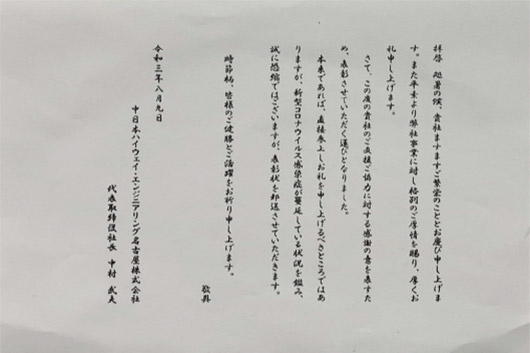 拝啓　処暑の候、貴社ますますご繁栄のこととお慶び申し上げま
す。また平素より弊社事業に対し格別のご厚情を賜り、厚くお
礼申し上げます。
さて、この度の貴社のご支援ご協力に対する感謝の意を表すた
め、表彰させていただく運びとなりました。
本来であれば、直接参上しお礼を申し上げるべきところではあ
りますが、新型コロナウイルス感染症が蔓延している状況を鑑み、
誠に恐縮ではございますが、表彰状を郵送させていただきます。
時節柄、皆様のご健勝とご活躍をお祈り申し上げます。
敬具
令和三年八月九日
中日本ハイウェイ・エンジニアリング名古屋株式会社
代表取締役社長　中村　武夫